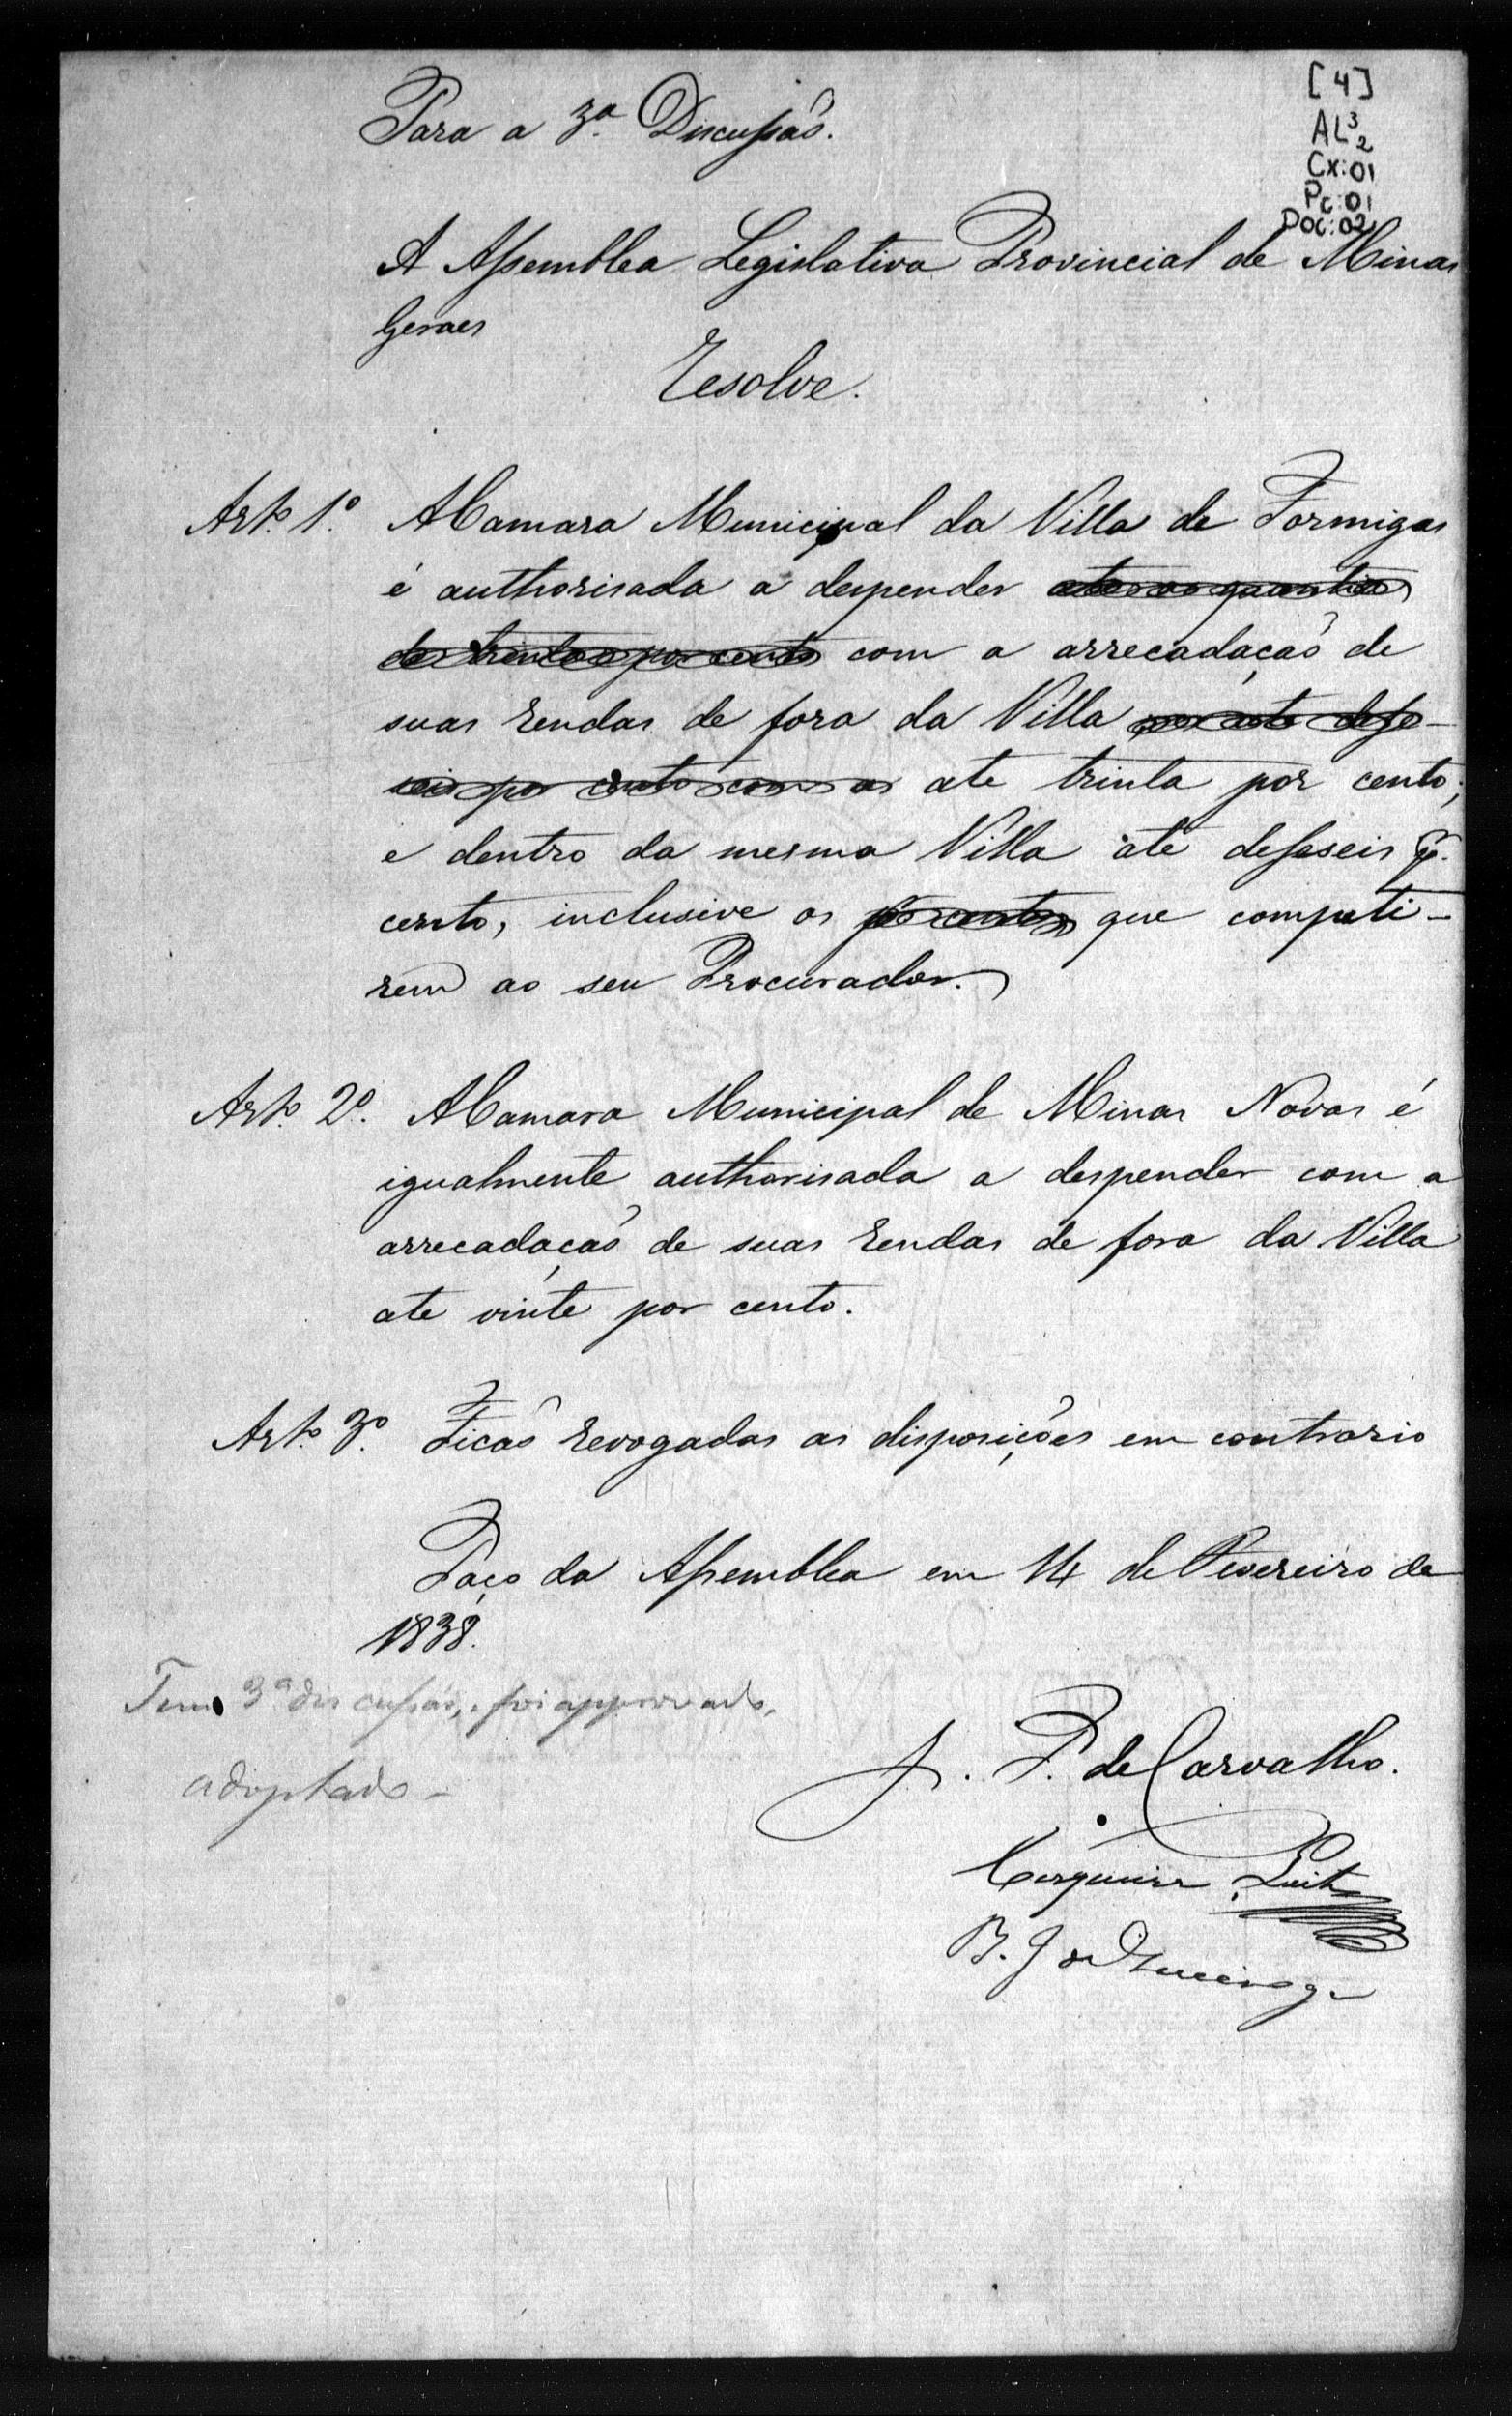 [4]
AL³2
Cx:01
Pc:01
Doc:02
Para a 3.ª Discussaõ.
A Assemblea Legislativa Provincial de Minas
Geraes
Resolve.
Art.º 1.º A Camara Municipal da Villa de Formigas
é authorisada a despender ate a quantia
de trinta por cento com a arrecadaçaõ de
suas rendas de fora da Villa desse-
seis por cento com as ate trinta por cento;
e dentro da mesma Villa até desseseis p.
cento, inclusive os por centos que competi-
rem ao seu Procurador.
Art.º 2.º A Camara Municipal de Minas Novas é
igualmente authorisada a despender com a
arrecadaçaõ de suas rendas de fora da Villa
ate vinte por cento.
Art.º 3.º Ficaõ revogadas as disposições em contrario
Paço da Assemblea em 14 de Fevereiro de
1838.
Teve 3ª discussaõ, foi approvado,
adoptado -
J. P. de Carvalho.
Cerqueira Leite
B. J.